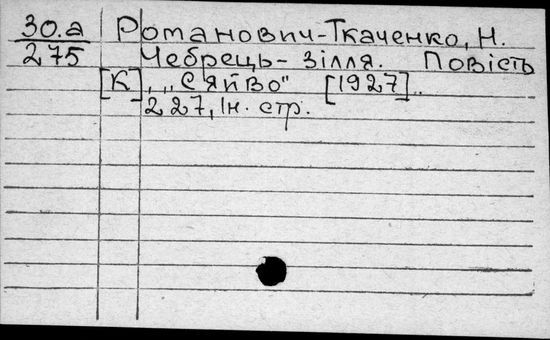 30.а Романович-Ткаченко, Н.
275 Чебрець-зілля. Повість
[К], „Сяйво" [1927]..
227, Ін. стр.